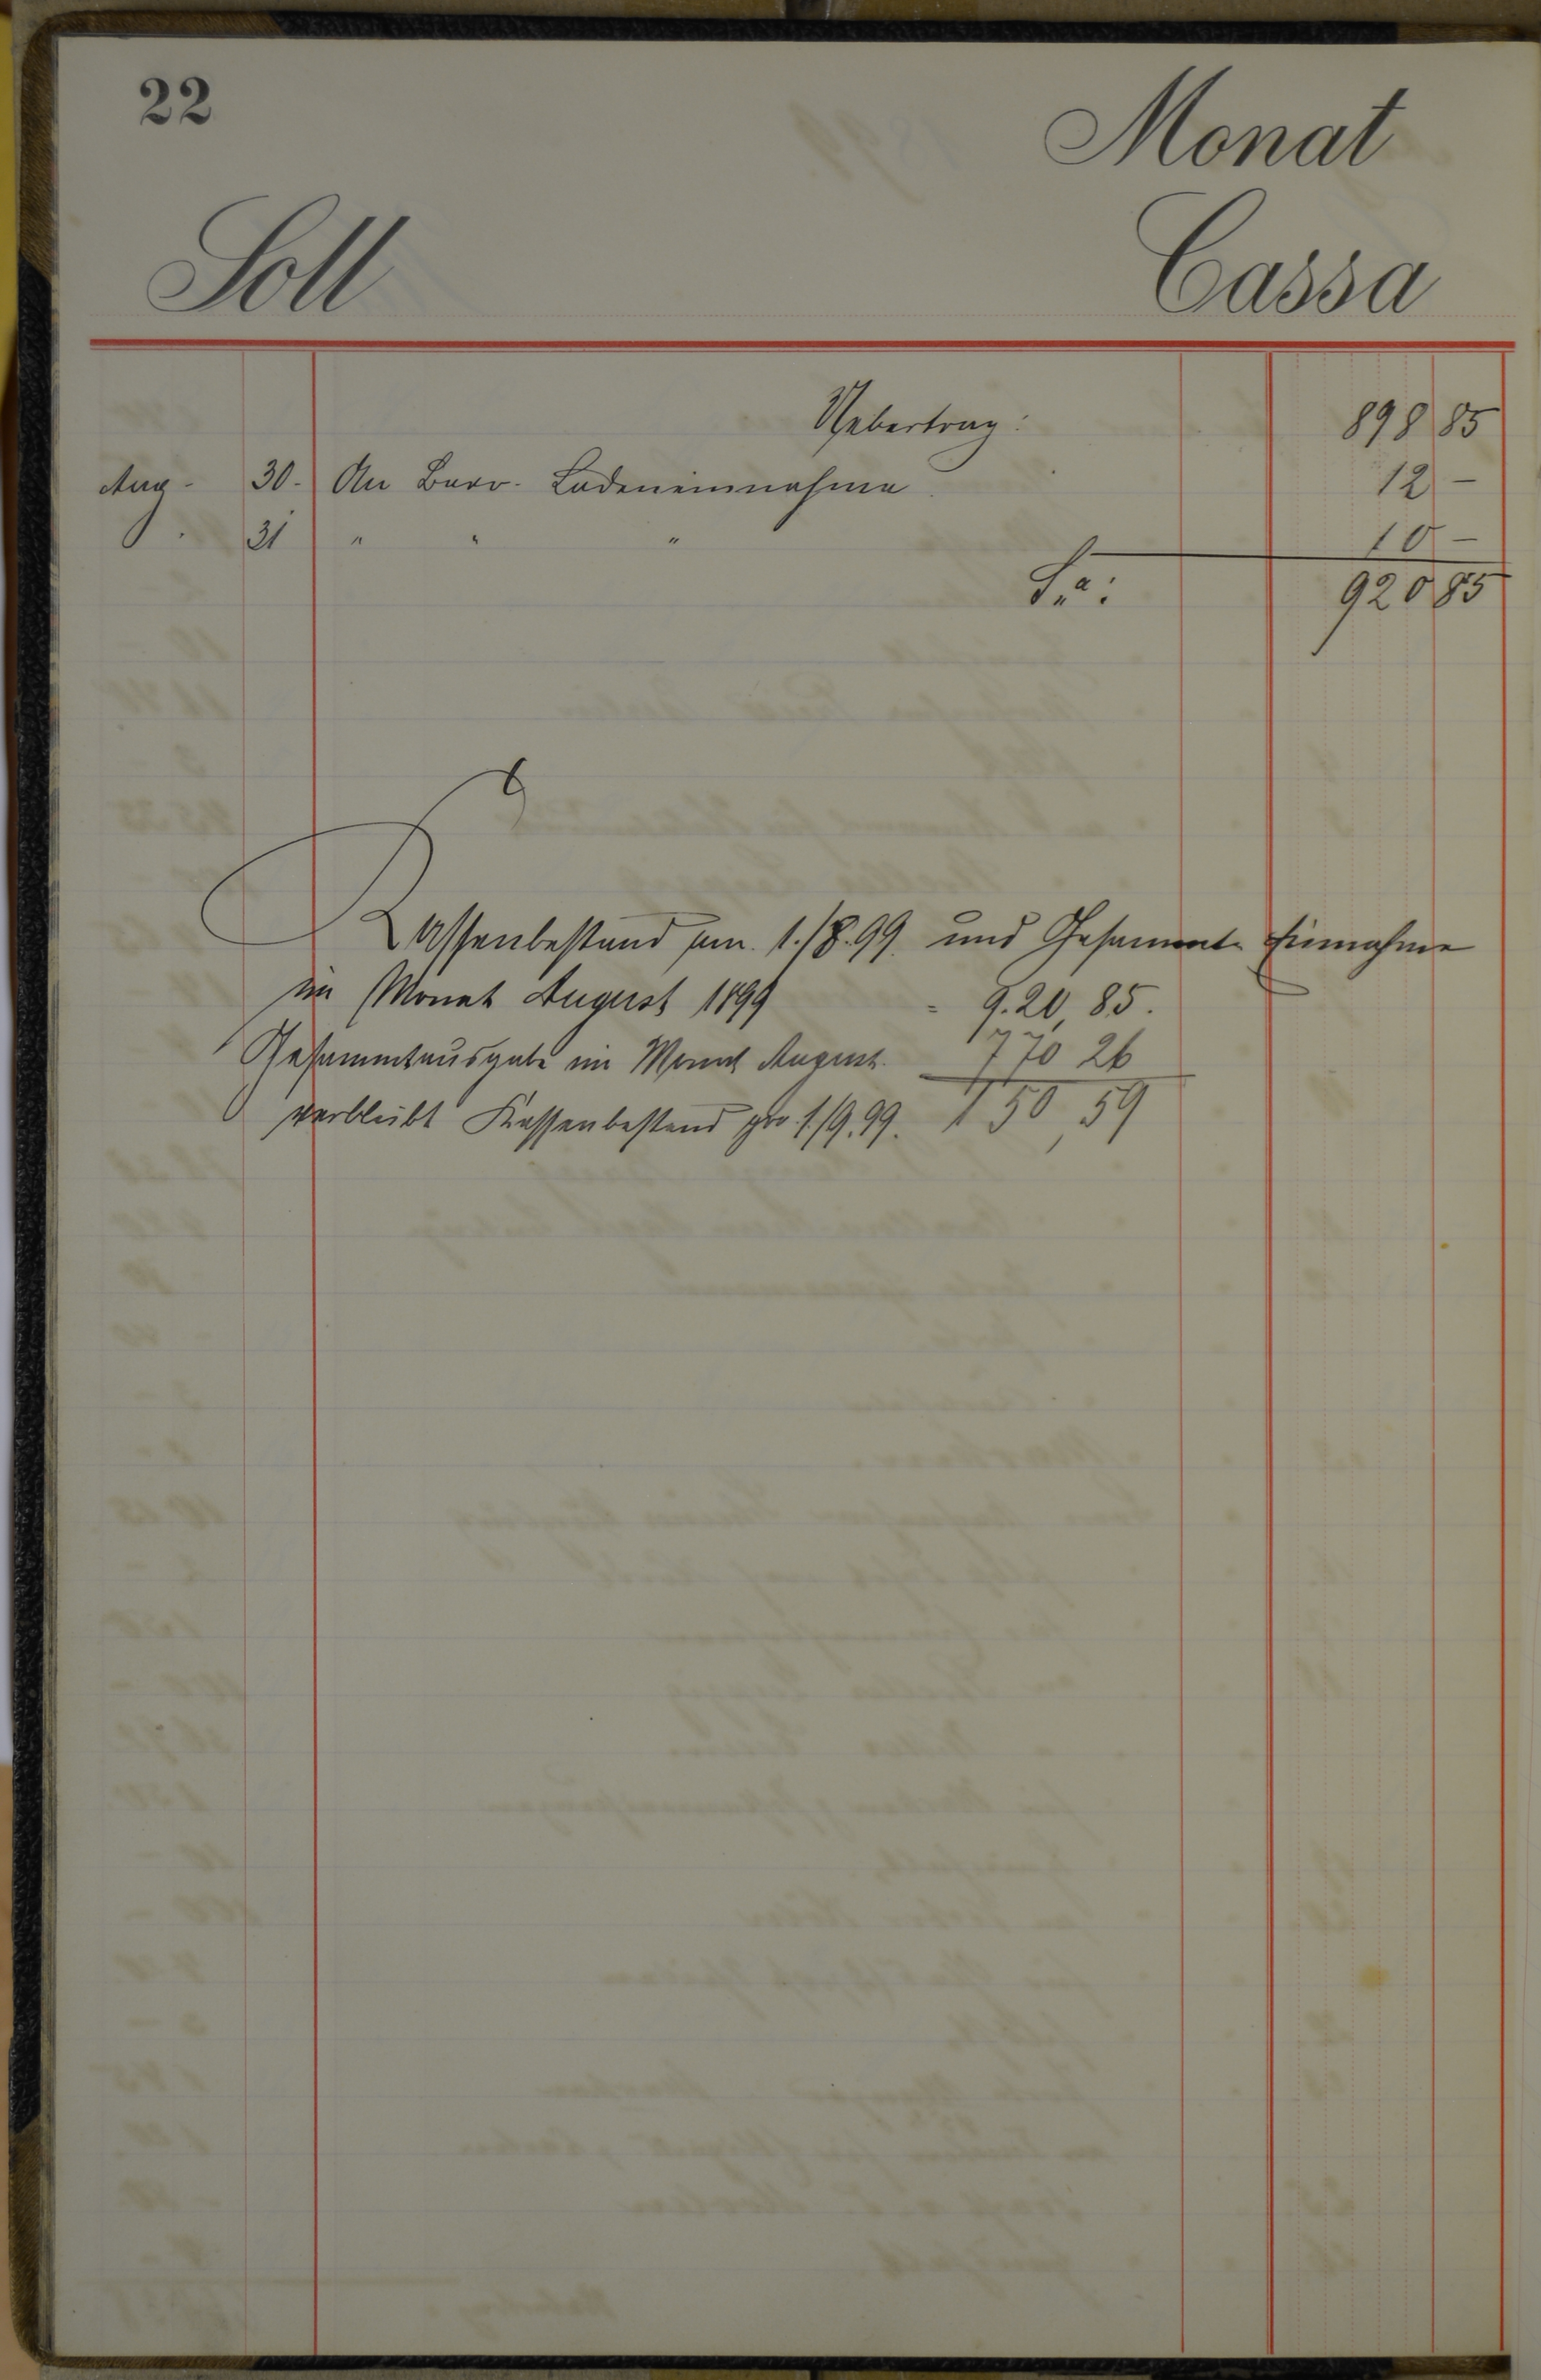 22
Monat
Soll
Cassa
Uebertrag: 898 85
Aug. 30. An Baar. Ladeneinnahme. 12 -
" . 31 " " " 10 -
Sa: 920 85
Kassenbestand am 1./8.99. und Gesammt-Einnahme
im Monat August 1899 = 9.20, 85.
Gesammtausgabe im Monat August. 770 26
verbleibt Kassenbestand pro 1./9.99. 150, 59